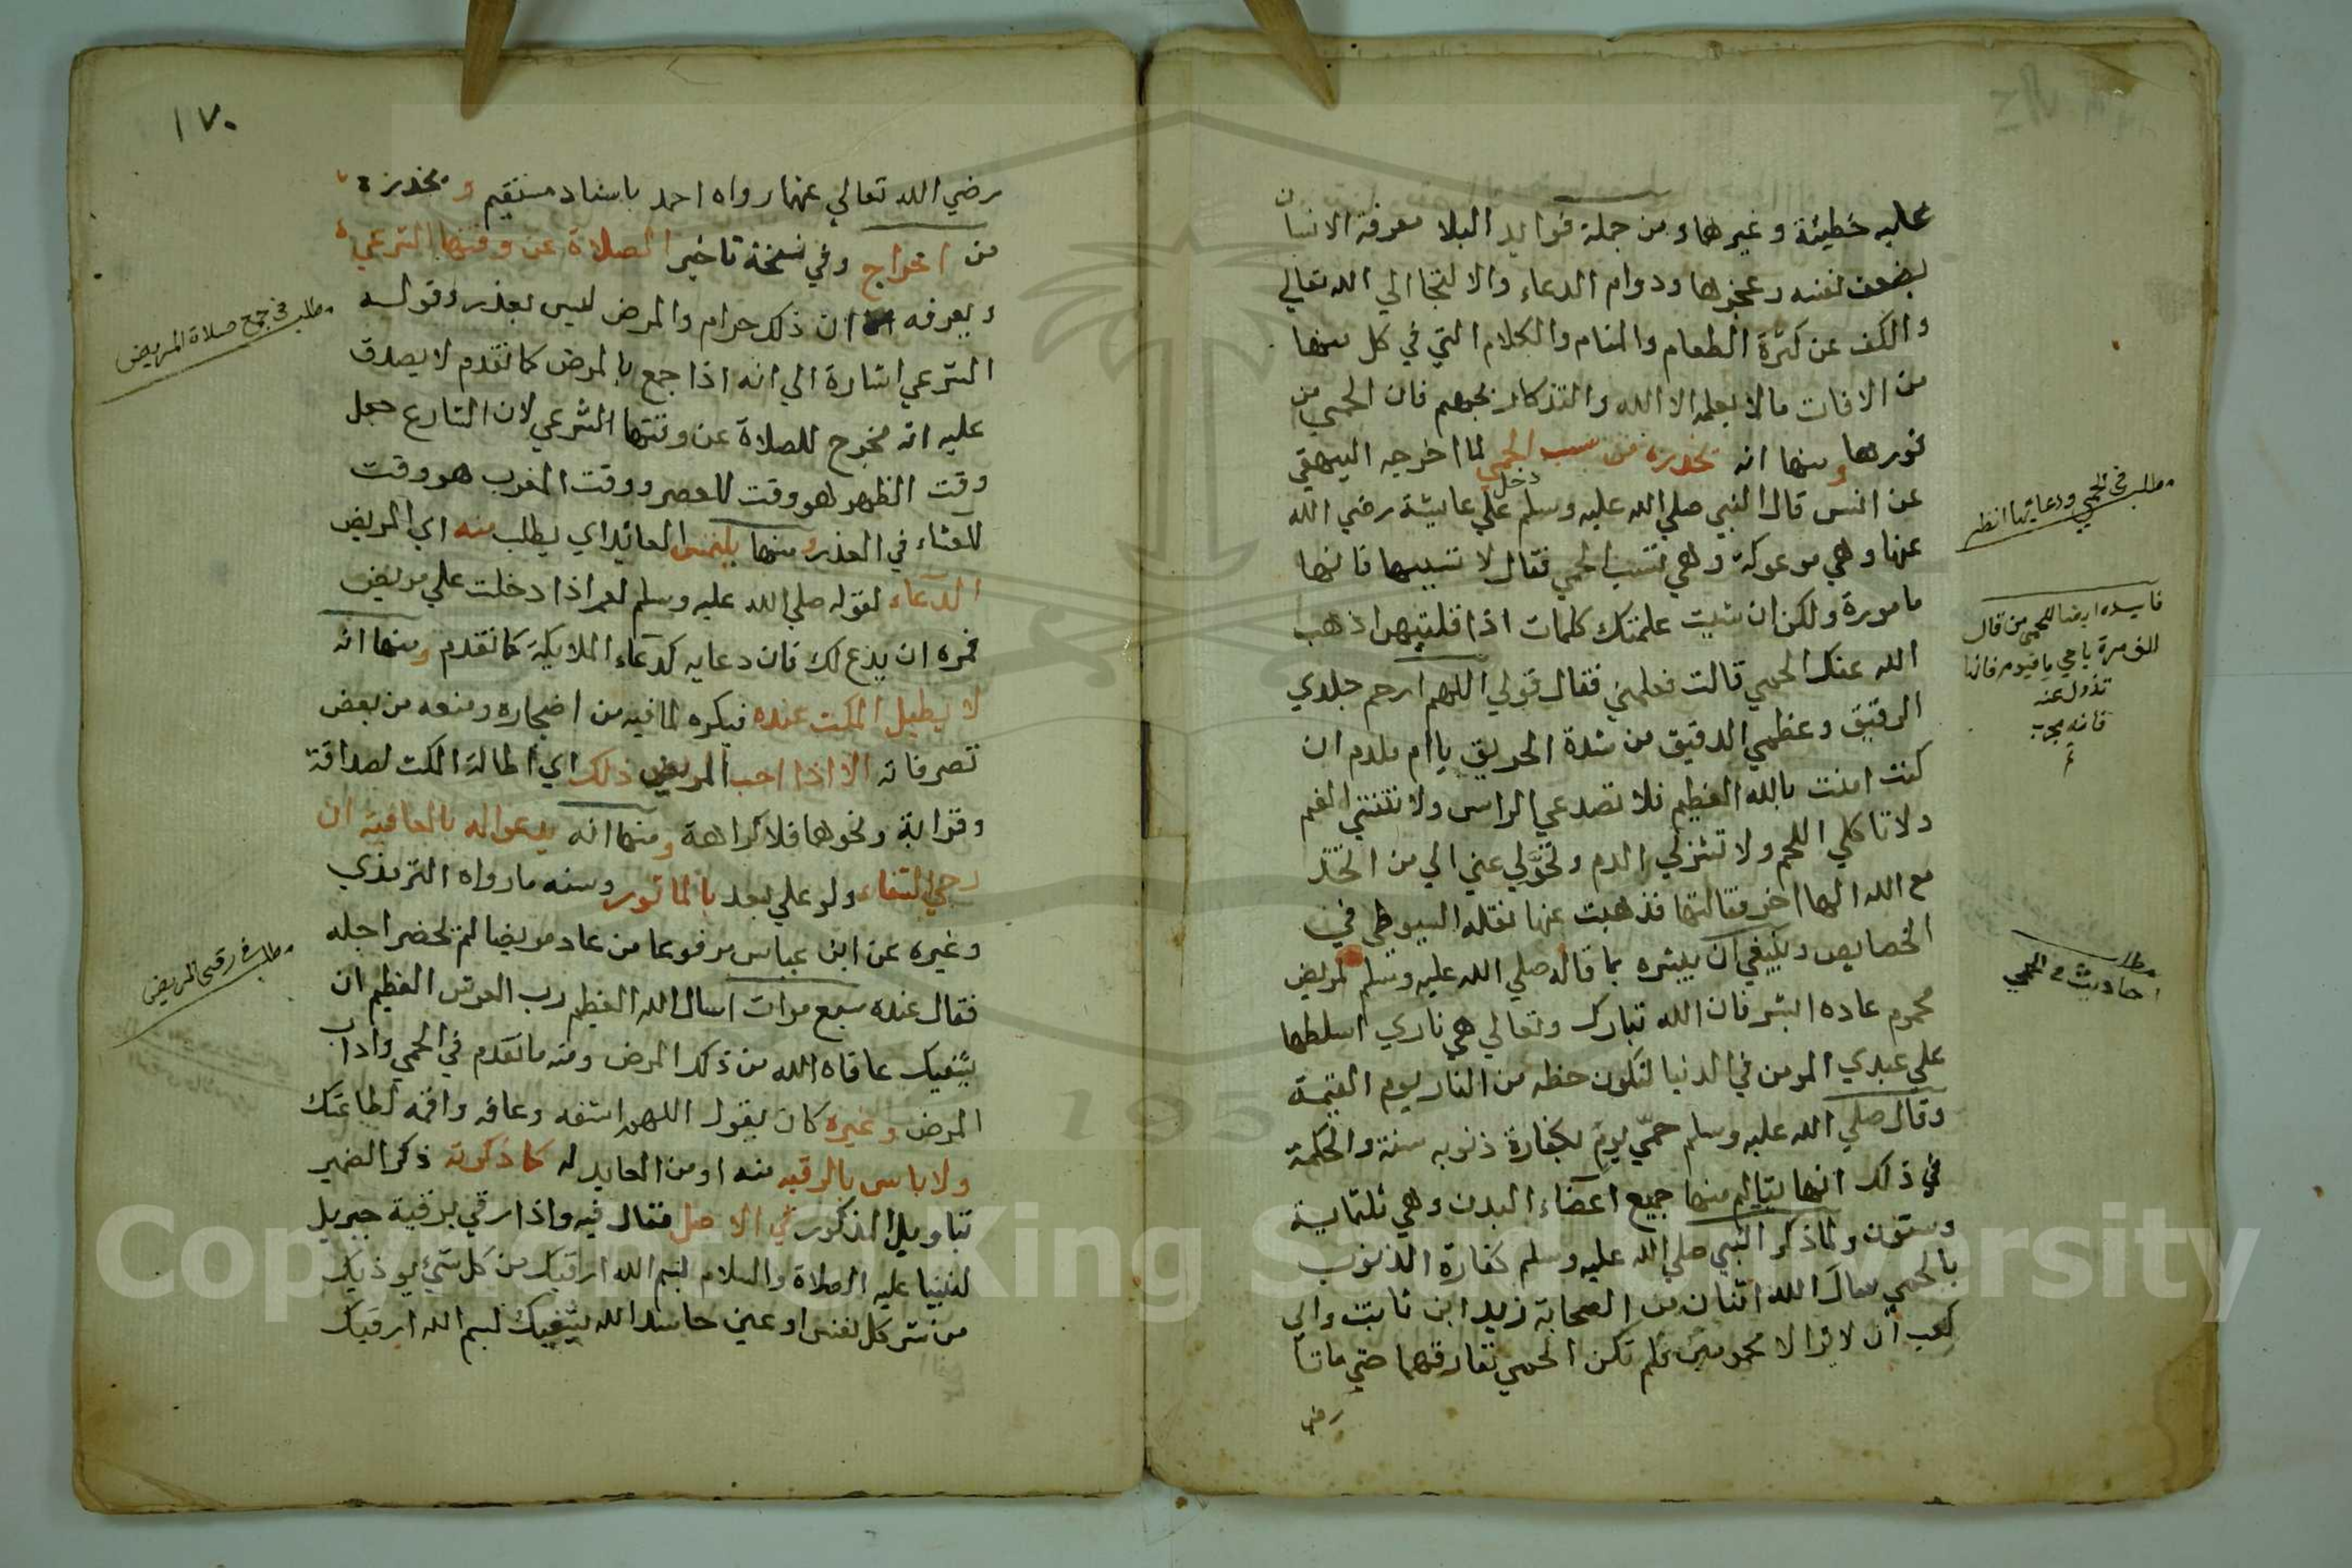 عليه خطيئة وغيرها ومن جملة فوايد البلا معرفة الانسان
بضعف نفسه وعجزها ودوام الدعاء والالتجا الي الله تعالي
والكف عن كثرة الطعام والمنام والكلام التي في كل منها
من الافات مالا يعلمه الا الله والتذكار بجهنم فان الحمي من
فورها ومنها انه يحذره من سبب الحمي لما اخرجه البيهقي
عن انس قال النبي صلي الله عليه وسلم دخل علي عايشة رضي الله
عنها وهي موعوكة وهي تسب الحمي فقال لا تسبيها فانها
مامورة ولكن ان شيت علمتك كلمات اذا قلتيهن اذهب
الله عنك الحمي قالت فعلمني فقال قولي اللهم ارحم جلدي
الرقيق وعظمي الدقيق من شدة الحريق ياام ملدم ان
كنت امنت بالله العظيم فلا تصدعي الراس ولا تنتني الفم
ولا تاكلي اللحم ولا تشربي الدم وتحولي عني الي من اتخذ
مع الله الها اخر فقالتها فذهبت عنها نقله السيوطي في
الخصايص وينبغي ان يبشره بما قاله صلي الله عليه وسلم لمريض
محموم عاده ابشر فان الله تبارك وتعالي هي ناري اسلطها
علي عبدي المومن في الدنيا لتكون حظه من النار يوم القيمة
وقال صلي الله عليه وسلم حمّي يوم كفارة ذنوبه سنة والحكمة
في ذلك انها يتالم منها جميع اعضاء البدن وهي ثلثماية
وستون ولما ذكر النبي صلي الله عليه وسلم كفارة الذنوب
بالحمي سال الله اثنان من الصحابة زيد ابن ثابت وابي
كعب ان لا يزالا محمومين فلم تكن الحمي تفارقهما حتي ماتا
رضي
مطلب في الحمي ودعايها انظر
فايده ايضا للحمي من قال
الف مرة يا حي يا قيوم فانها
تزول عنه
فانه مجرب
مطلب
احاديث في الحمي
١٧٠
رضي الله تعالي عنهما رواه احمد باسناد مستقيم و يحذره
من اخراج وفي نسخة تاخير الصلاة عن وقتها الشرعي
ويعرفه ان ذلك حرام والمرض ليس بعذر وقوله
الشرعي اشارة الي انه اذا جمع بالمرض كما تقدم لا يصدق
عليه انه مخرج للصلاة عن وقتها الشرعي لان الشارع جعل
وقت الظهر هو وقت للعصر ووقت المغرب هو وقت
للعشاء في العذر ومنها يلتمس العائد اي يطلب منه اي المريض
الدعاء لقوله صلي الله عليه وسلم لعمر اذا دخلت علي مريض
فمره ان يدع لك فان دعايه كدعاء الملايكة كما تقدم ومنها انه
لا يطيل المكث عنده فيكره لما فيه من اضجاره ومنعه من بعض
تصرفاته الا اذا احب المريض ذلك اي اطالة المكث لصداقة
وقرابة ونحوها فلا كراهة ومنها انه يدعو اله بالعافية ان
رجي الشفاء ولو علي بعد بالماثور ومنه ما رواه الترمذي
وغيره عن ابن عباس مرفوعا من عاد مريضا لم يحضر اجله
فقال عنده سبع مرات اسال الله العظيم رب العرش العظيم ان
يشفيك عافاه الله من ذلك المرض ومنه ما تقدم في الحمي واداب
المرض وغيره كان يقول اللهم اشفه وعافه واقمه لطاعتك
ولا باس بالرقيه منه او من العايد له كما ذكرته ذكر الضمير
بتاويل المذكور في الاصل فقال فيه واذا رقي برقية جبريل
لنبينا عليه الصلاة والسلام بسم الله ارقيك من كل شئ يوذيك
من شر كل نفس او عين حاسد الله يشفيك بسم الله ارقيك
مطلب في جمع صلاة المريض
مطلب في رقي المريض
Copyright © King Saud University
195